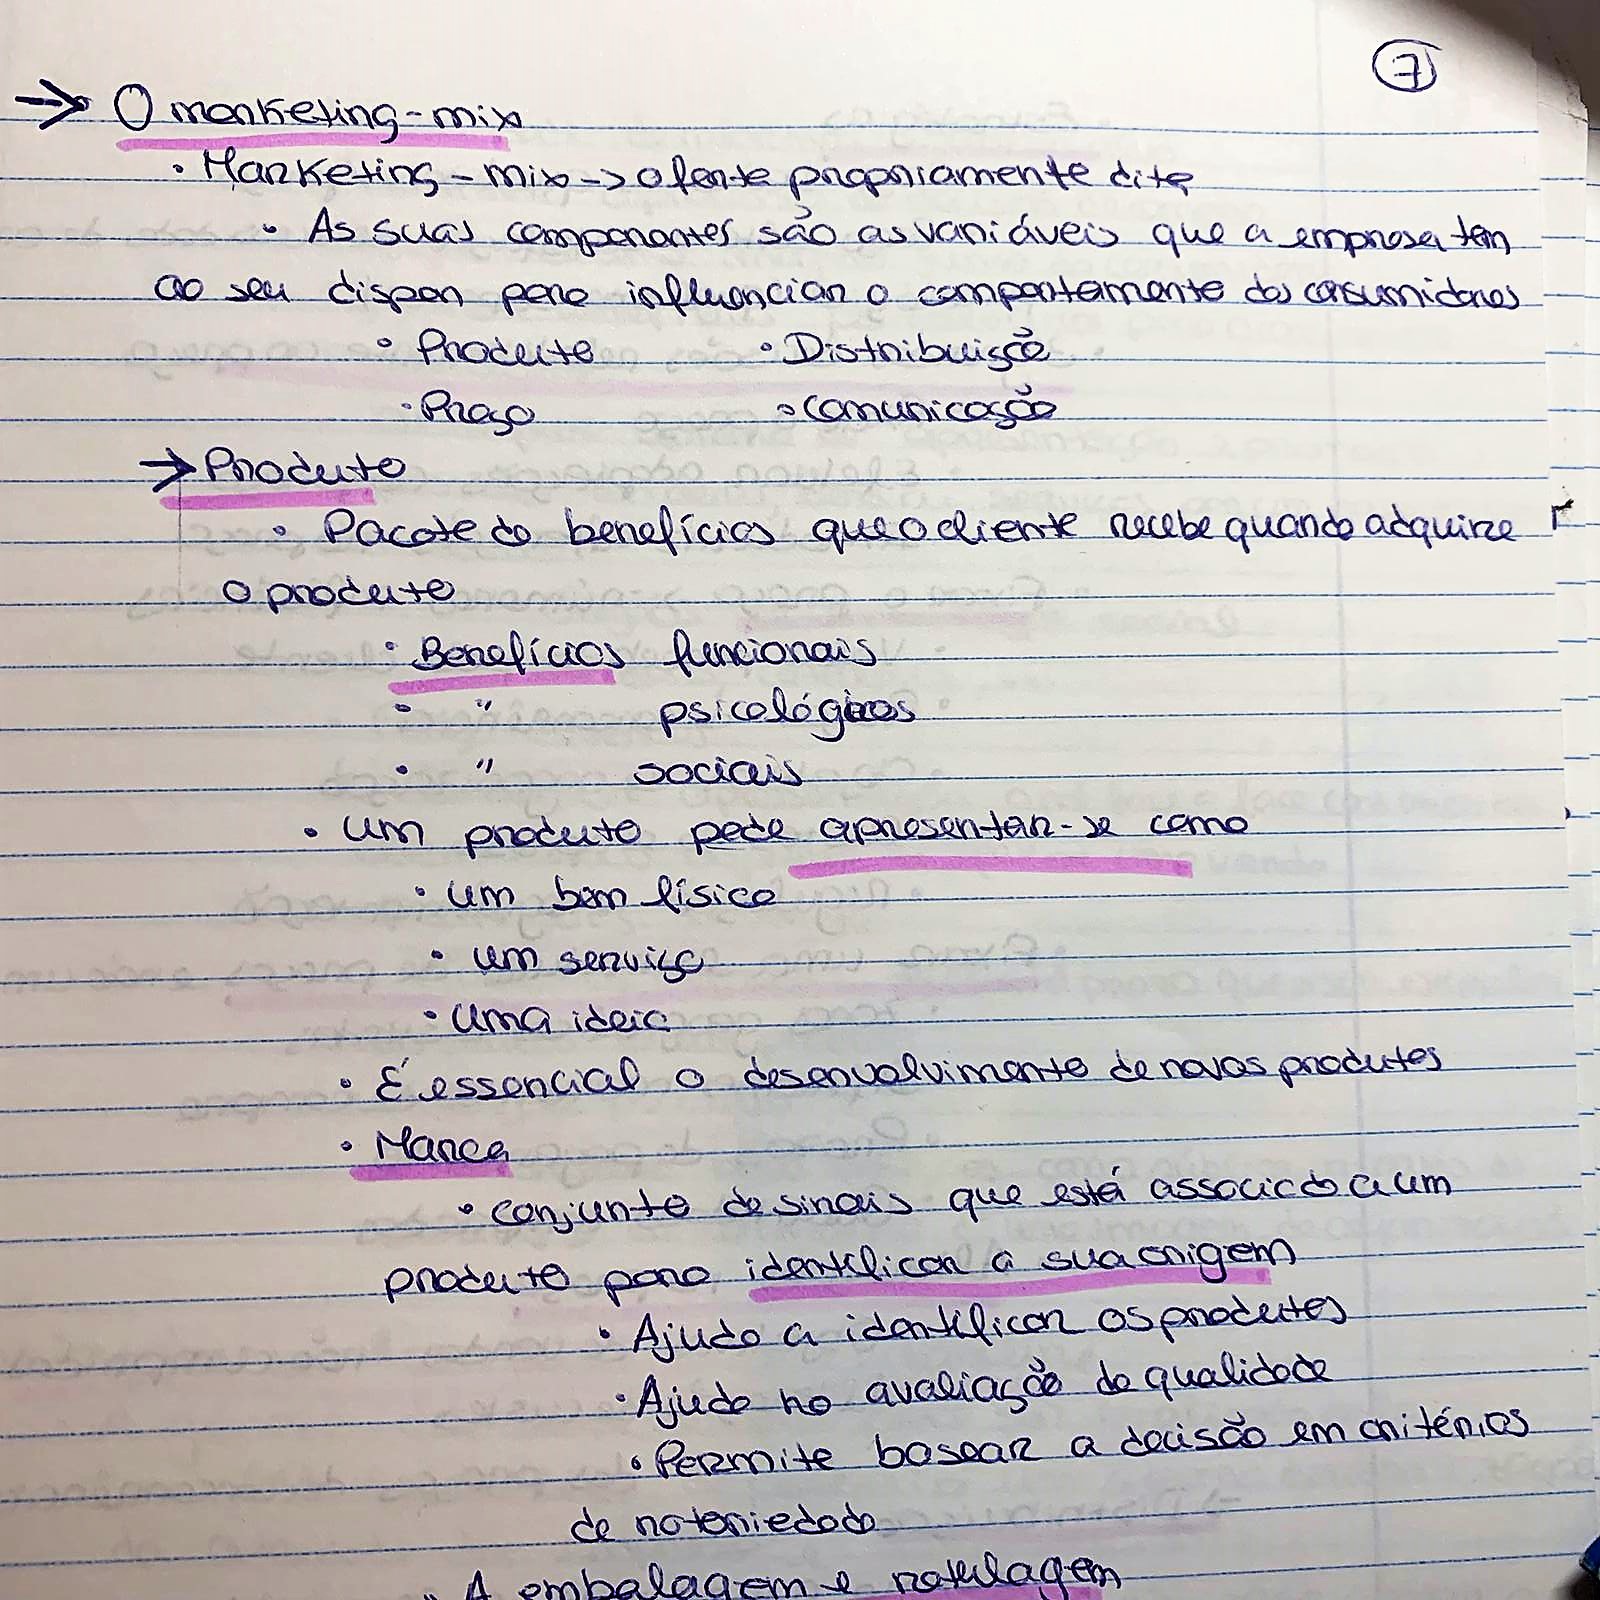 7
→ O marketing-mix
• Marketing-mix -> oferta propriamente dita
• As suas componentes são as variáveis que a empresa tem
ao seu dispor para influenciar o comportamento dos consumidores
• Produto • Distribuição
• Preço • Comunicação
→ Produto
• Pacote de benefícios que o cliente recebe quando adquire
o produto
• Benefícios funcionais
• " psicológicos
• " sociais
• Um produto pode apresentar-se como
• um bem físico
• um serviço
• uma ideia
• É essencial o desenvolvimento de novos produtos
• Marca
• conjunto de sinais que está associado a um
produto para identificar a sua origem
• Ajuda a identificar os produtos
• Ajuda na avaliação da qualidade
• Permite basear a decisão em critérios
de notoriedade
• A embalagem e rotulagem